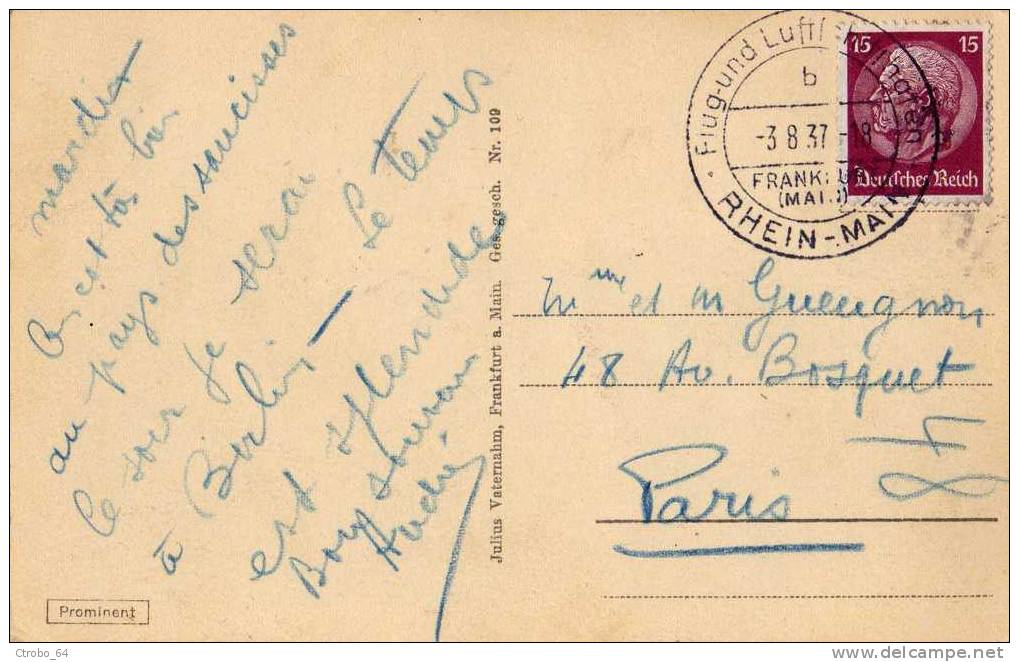 mardi
au pays des saucisses
le soir je serai
à Berlin — Le temps
est splendide
Bons souvenirs
André
Julius Vaternahm, Frankfurt a. Main. Ges. gesch. Nr. 109
Prominent
Flug-und Luft
b
-3.8.37.-8
FRANKFU
(MAIN)
RHEIN-MAIN
15 15
Deutsches Reich
Mme et M Gueugnon
48 Av. Bosquet
Paris
Ctrobo_64
delcampe.net